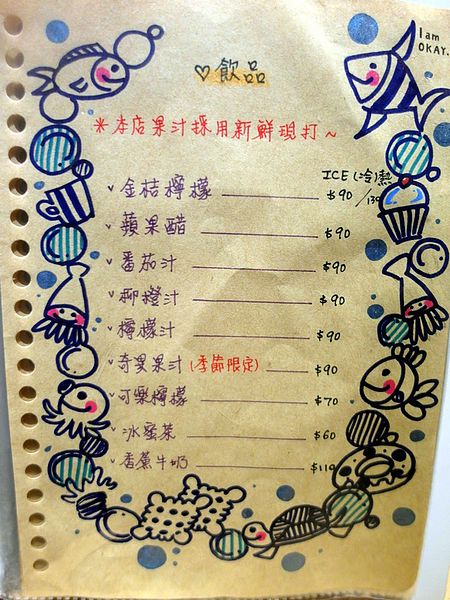 I am
OKAY.
♡飲品
*本店果汁採用新鮮現打~
ICE(冷)熱
金桔檸檬 $90/130
蘋果醋 $90
番茄汁 $90
柳橙汁 $90
檸檬汁 $90
奇異果汁(季節限定) $90
可樂檸檬 $70
冰蜜茶 $60
香蕉牛奶 $110